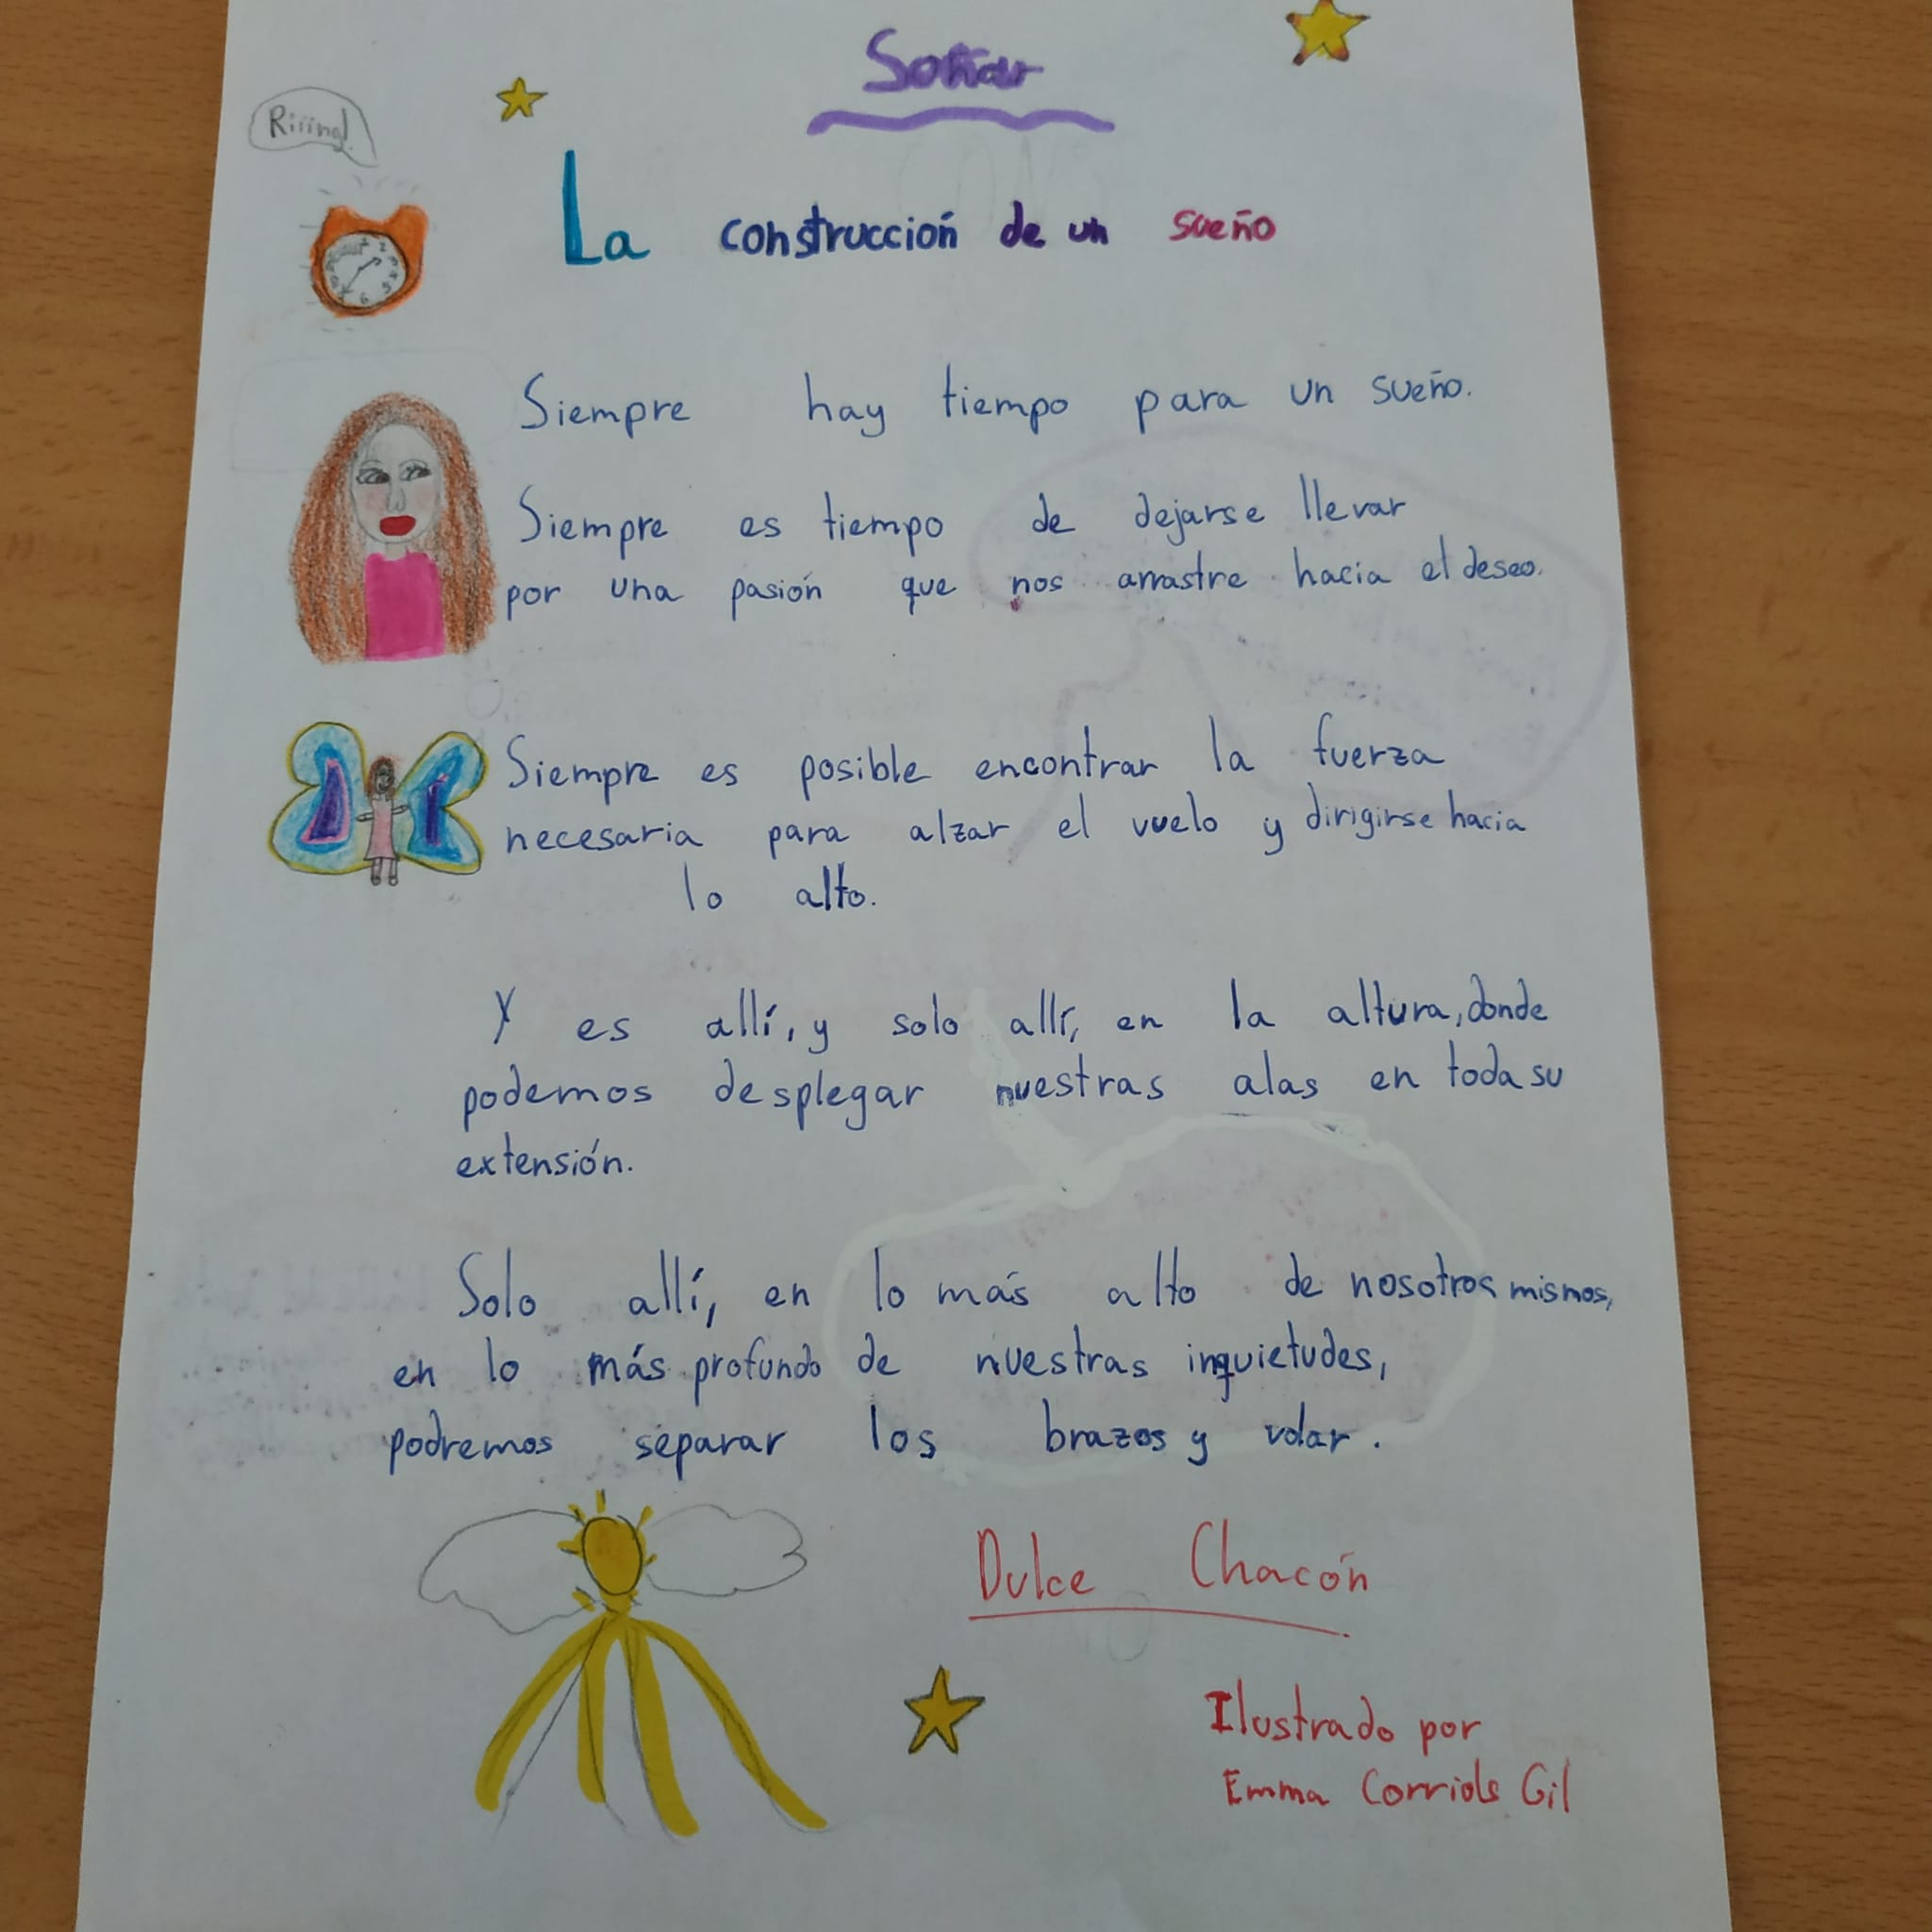 Soñar
Riiing!
La construcción de un sueño
Siempre hay tiempo para un sueño.
Siempre es tiempo de dejarse llevar
por una pasión que nos arrastre hacia el deseo.
Siempre es posible encontrar la fuerza
necesaria para alzar el vuelo y dirigirse hacia
lo alto.
Y es allí, y solo allí, en la altura, donde
podemos desplegar nuestras alas en toda su
extensión.
Solo allí, en lo más alto de nosotros mismos,
en lo más profundo de nuestras inquietudes,
podremos separar los brazos y volar.
Dulce Chacón
Ilustrado por
Emma Corriols Gil